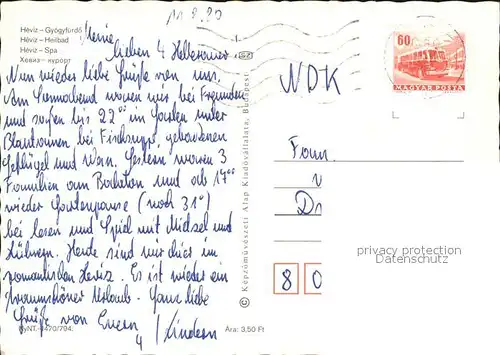 11.8.90
Hévíz – Gyógyfürdő
Hévíz – Heilbad
Hévíz – Spa
Хевиз – курорт
Meine
lieben 4
Nun wieder liebe Grüße von uns.
Am Sonnabend waren wir bei Freunden
und saßen bis 22⁰⁰ im Garten unter
Blautannen bei Fischsuppe, gebackenen
Geflügel und Wein. Gestern waren 3
Familien am Balaton, und ab 14⁰⁰
wieder Gartenpause (noch 31°)
bei lesen und Spiel mit und
Hühnern. Heute sind wir hier im
romantischen Heviz. Es ist wieder ein
traumhöner Urlaub. Ganz liebe
Grüße von Euren
4 Kindern
RyNT.-3470/794.
Ára: 3,50 Ft
© Képzőművészeti Alap Kiadóvállalata, Budapest
60
MAGYAR POSTA
NDK
Fam.
Dr
80
privacy protection
Datenschutz